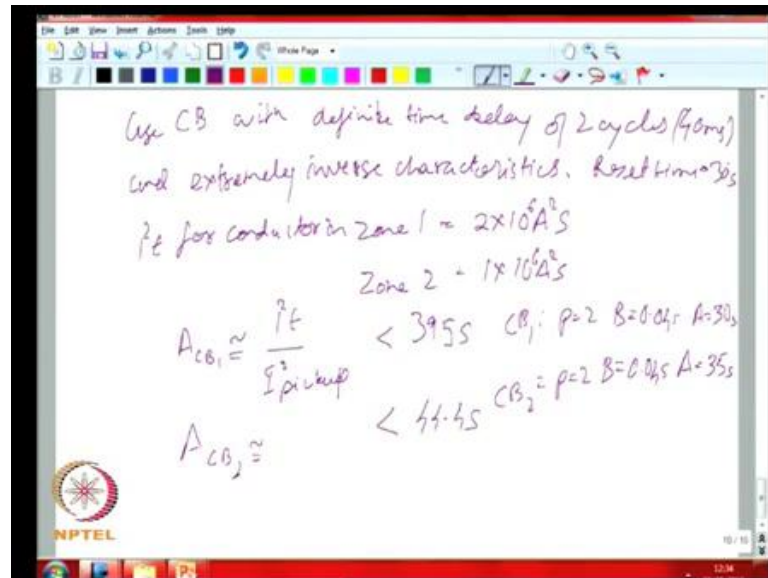 File Edit View Insert Actions Tools Help
Whole Page
Use CB with definite time delay of 2 cycles (40ms)
and extremely inverse characteristics. Reset time=
I²t for conductor in Zone 1 = 2×10⁶A²S
Zone 2 = 1×10⁶A²S
A_CB₁ ≅ I²t / I²pickup < 395s CB₁: p=2 B=0.04s A=30s
A_CB₂ ≅ < 44.4s CB₂ = p=2 B=0.04s A=35s
NPTEL
10 / 10
12:34